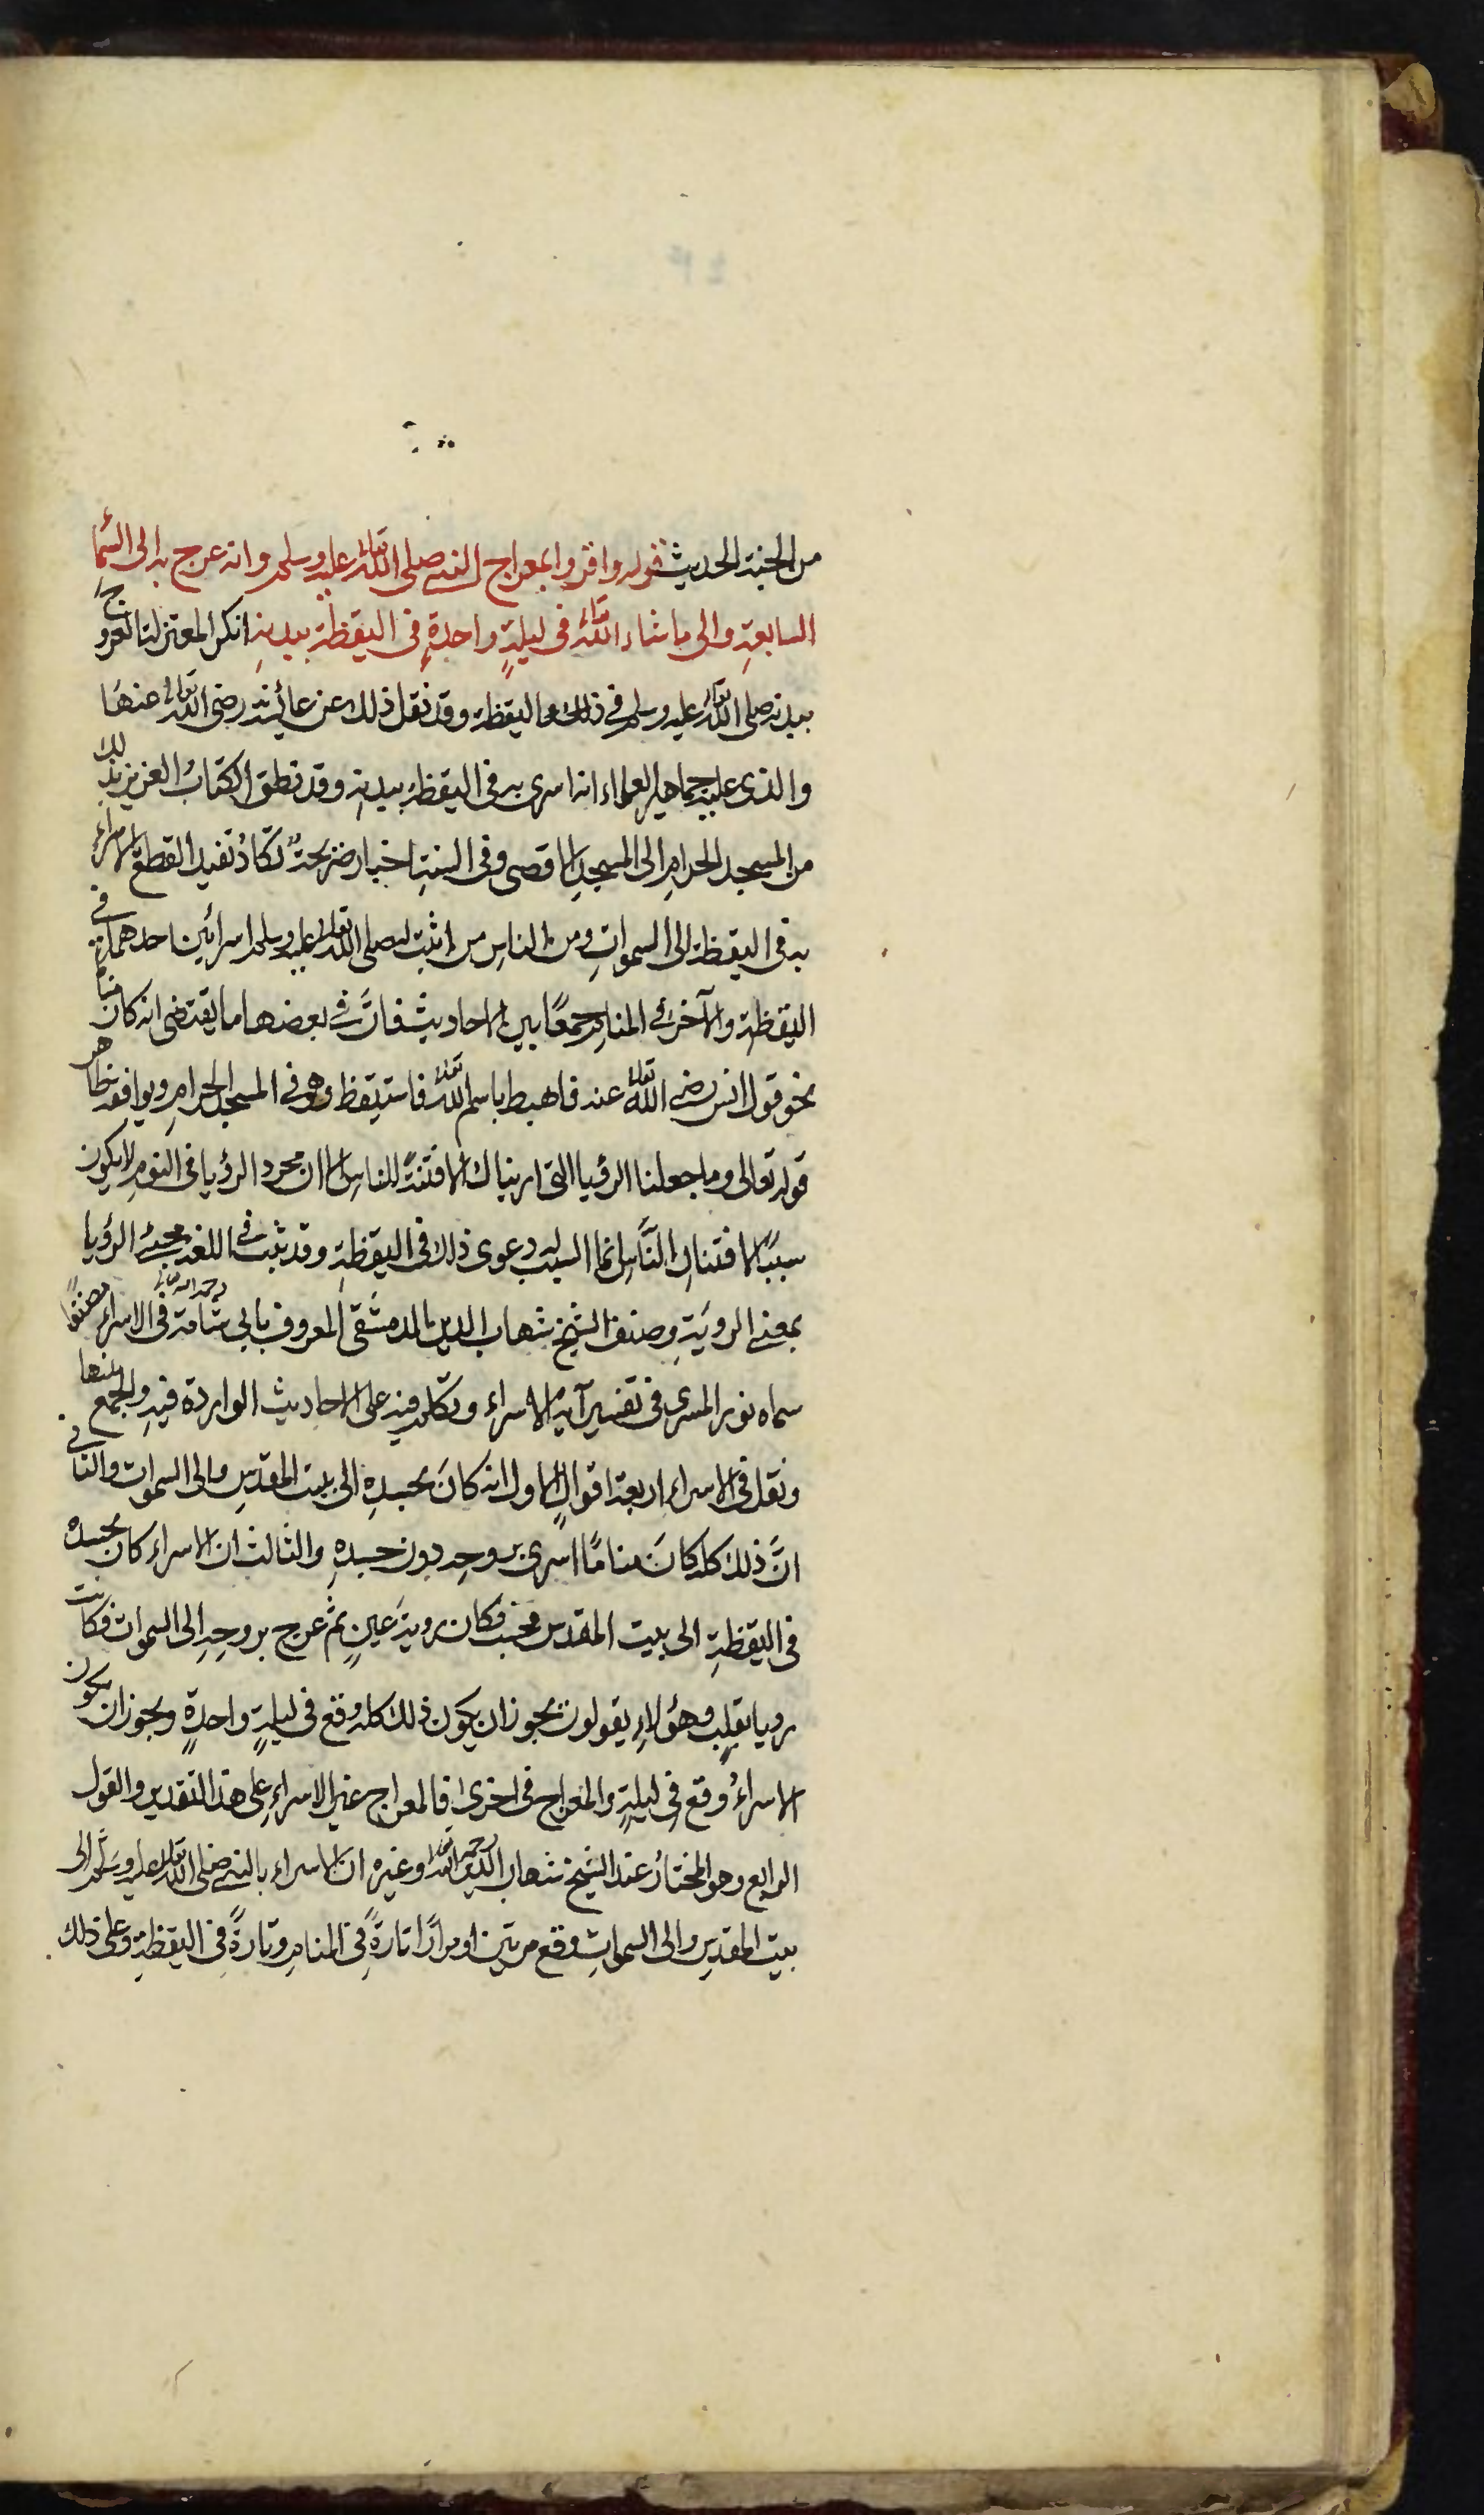 من الجنة الحديث قوله واقروا بمعراج النبي صلى الله تعالى عليه وسلم وانه عرج به الى السما
السابعةِ والى ما شاء الله تعالى فى ليلةٍ واحدةٍ فى اليقظة ببدنهِ انكر المعتزلة العروج
ببدنه صلى الله تعالى عليه وسلم في ذلك اليقظة وقد نقل ذلك عن عائشة رضى الله تعالى عنها
والذى عليه جماهير العلماء انه اسرى به فى اليقظة ببدنهِ وقد نطق الكتابُ العزيز بذلك
من المسجد الحرامِ الى المسجدِ الاقصى وفى السنةِ اخبار صريحةٌ تكادُ تفيد القطع بالاسراء
به فى اليقظة الى السمواتِ ومن الناسِ من اثبت له صلى الله تعالى عليه وسلم اسرائين احدهما في
اليقظةِ والآخر في المنامِ جمعًا بين الاحاديث فانَّ في بعضها ما يقتضى انه كان مناما
نحو قول انس رضي الله تعالى عنه فاهبط باسم الله تعالى فاستيقظ وهو في المسجد الحرامِ ويوافقه ظاهر
قوله تعالى وما جعلنا الرؤيا التى اريناك الا فتنةً للناسِ الا ان مجرد الرؤيا فى النومِ لا يكون
سببًا لافتتانِ النَّاسِ انما السبب دعوى ذلك فى اليقظةِ وقد يثبت في اللغه مجئ الرؤيا
بمعنى الرويَةِ وصنف الشيخ شهاب الدين الدمشقى المعروف بابى شامة رحمه الله تعالى فى الاسراء مصنفًا
سماه نور المسرى فى تفسير آية الاسراء وتكلم فيه على الاحاديث الواردة فيهِ والجمع بينها
ونقل فى الاسراء اربعة اقوالٍ الاول انه كانَ بجسدهِ الى بيت المقدسِ والى السموات والثانى
انَّ ذلك كله كانَ منامًا اسرى بروحِه دون جسدهِ والثالث ان الاسراء كان بجسده
فى اليقظةِ الى بيت المقدس فحسب فكان رويةَ عينٍ ثم عرج بروحِهِ الى السموات فكانت
رويا بقلبٍ وهؤلاءِ يقولون يجوز ان يكون ذلك كله وقع فى ليلةٍ واحدةٍ ويجوز ان يكون
الاسراءُ وقع فى ليلةٍ والمعراج فى اخرى فالمعراج غير الاسراءِ على هذا التقدير والقول
الرابع وهو المختارُ عند الشيخ شهاب الدين رحمه الله تعالى وغيره ان الاسراء بالنبي صلى الله تعالى عليه وسَلَّم الى
بيت المقدسِ والى السمواتِ وقع مرتين او مرارًا تارةً فى المنامِ وتارةً فى اليقظةِ وعلى ذلك